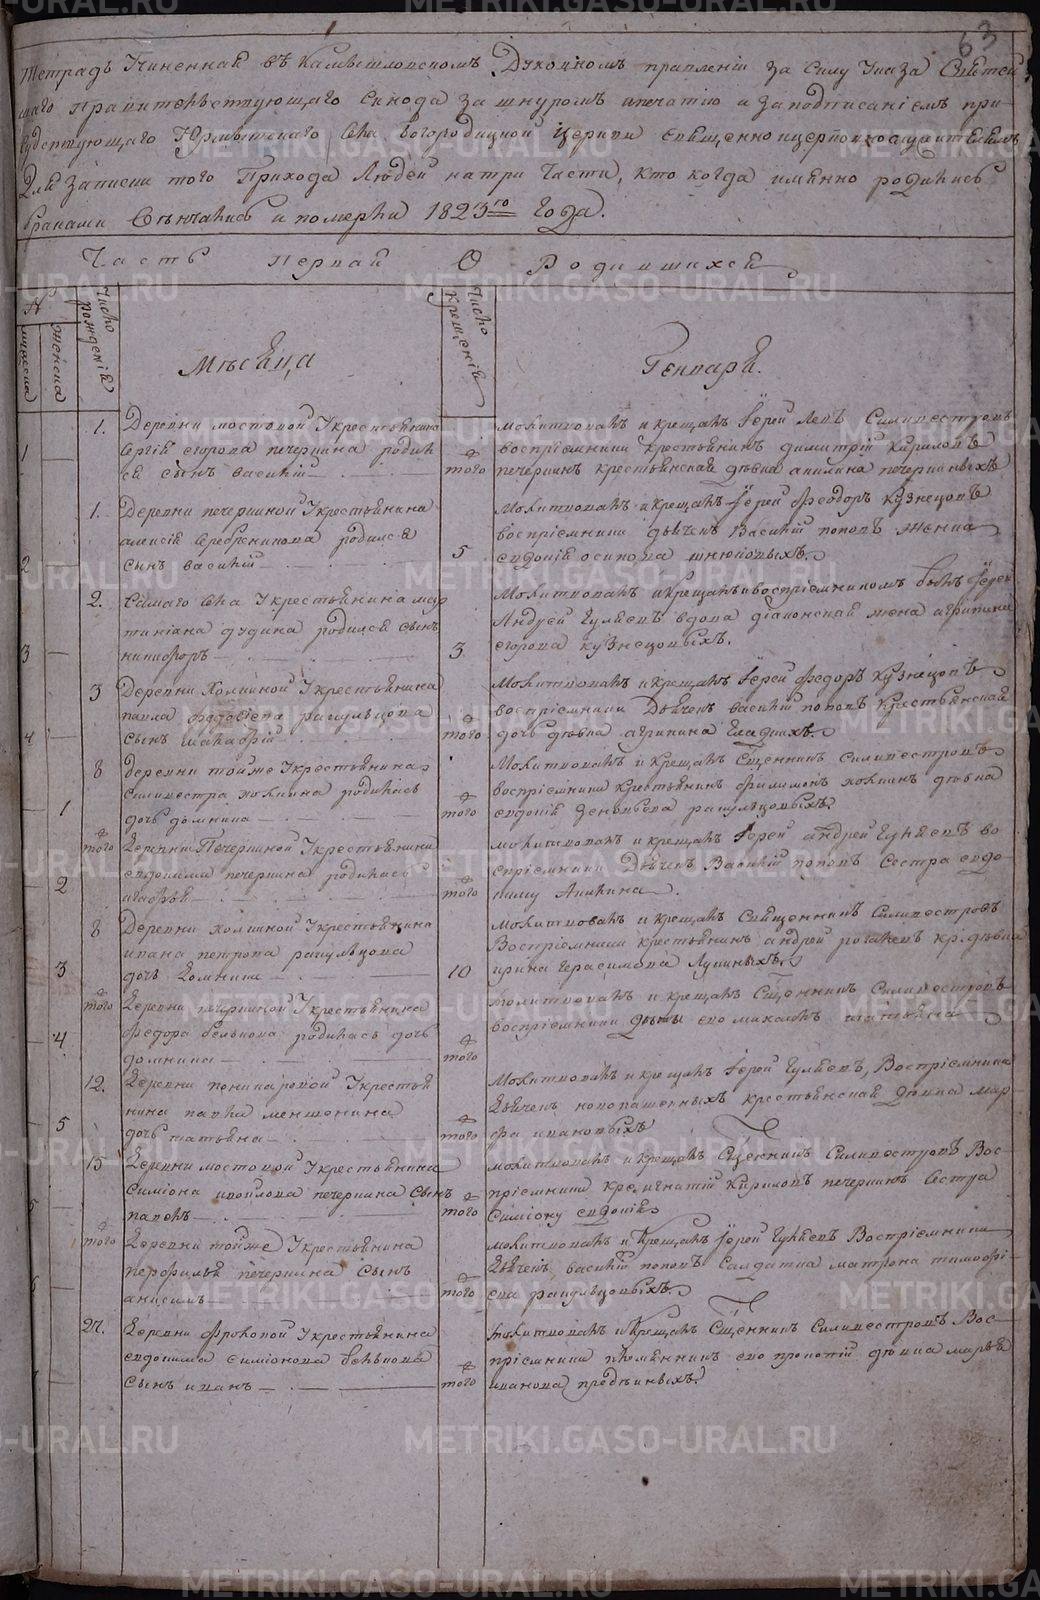 63
Тетрадь Учиненная въ Камышловскомъ Духовномъ правленіи за силу Указа Святей
шаго правительствующаго Синода за шнуромъ и печатью и за подписаніемъ при
судствующаго Юрмытскаго села богородицкой церкви священноцерковнослужителямъ
Для записки того Прихода Людей на три Части, кто когда имянно родились
браками Свенчались и померли 1823го Года.
Часть первая О Родившихся
Число рожденія
Мѣсяца
Число крещенія
Генваря.
мужеска
женска
1
1.
Деревни мостовой У крестьянина
Сергія егорова печеркина родил
ся сынъ василій
того
молитвовалъ и крещалъ Іерей Левъ Силивестровъ
воспріемники крестьянинъ димитрій Кириловъ
печеркинъ крестьянская дѣвка акилина печеркиныхъ
2
1.
Деревни печеркиной У крестьянина
алексія Серебреникова родился
сынъ василій
5
Молитвовалъ и крещалъ Іерей Феодоръ кузнецовъ
воспріемники дьячекъ Василій поповъ женка
евдокія осипова
3
2.
Самаго села У крестьянина мар
тиніана дудина родился сынъ
никифоръ
3
Молитвовалъ и крещалъ и воспріемникомъ былъ Іерей
Андрей Гуляевъ вдова діаконская жена агрипина
егорова кузнецовыхъ.
4
3
Деревни Холкиной У крестьянина
павла рагульцова
сынъ макарій
того
Молитвовалъ и крещалъ Іерей федоръ Кузнецовъ
воспріемники Дьячекъ василій поповъ крестьянская
дочь дѣвка агрипина Гладкихъ
1
8
деревни тойже У крестьянина
Силивестра холкина родилась
дочь домника
того
Молитвовалъ и крещалъ Сщенникъ Силивестровъ
воспріемники Крестьянинъ филимонъ холкинъ дѣвка
евдокія рагульцовыхъ.
2
того
Деревни Печеркиной У крестьянина
евдокима печеркина родилась
агафья
того
молитвовалъ и крещалъ Іерей андрей Гуляевъ во
спріемники Дьячекъ Василій поповъ Сестра евдо
киму Акилина
3
8
Деревни холкиной У крестьянина
ивана петрова рагульцова
дочь Домника
10
молитвовалъ и крещалъ Священникъ Силивестровъ
Воспріемники крестьянинъ андрей рогачевъ кр. дѣвка
ирина Герасимова Лупиныхъ.
4
того
Деревни печеркиной У крестьянина
Федора бѣлькова родилась дочь
домника
того
молитвовалъ и крещалъ Сщенникъ Силивестровъ
воспріемники дѣти его татьяна
5
12.
Деревни У крестья
нина павла меншенина
дочь татьяна
того
Молитвовалъ и крещалъ Іерей Гуляевъ, Воспріемники
Дьячекъ крестьянская дѣвка мар
фа ивановыхъ
5
15
Деревни мостовой У крестьянина
Симіона печеркина Сынъ
павелъ
того
молитвовалъ и крещалъ Сщенникъ Силивестровъ Вос
пріемники Кр. игнатій Кириловъ печеркинъ Сестра
Симіону евдокія
6
того
Деревни тойже У крестьянина
перфилья печеркина Сынъ
анисимъ
того
молитвовалъ и крещалъ Іерей Гуляевъ Воспріемники
Дьячекъ василій поповъ Салдатка матрона тимофі
ева рагульцовыхъ.
7
27.
Деревни Фроловой У крестьянина
евдокима симіонова бѣлькова
Сынъ иванъ
того
молитвовалъ и крещалъ Сщенникъ Силивестровъ Вос
пріемники племянникъ его прокопій дѣвка марья
иванова